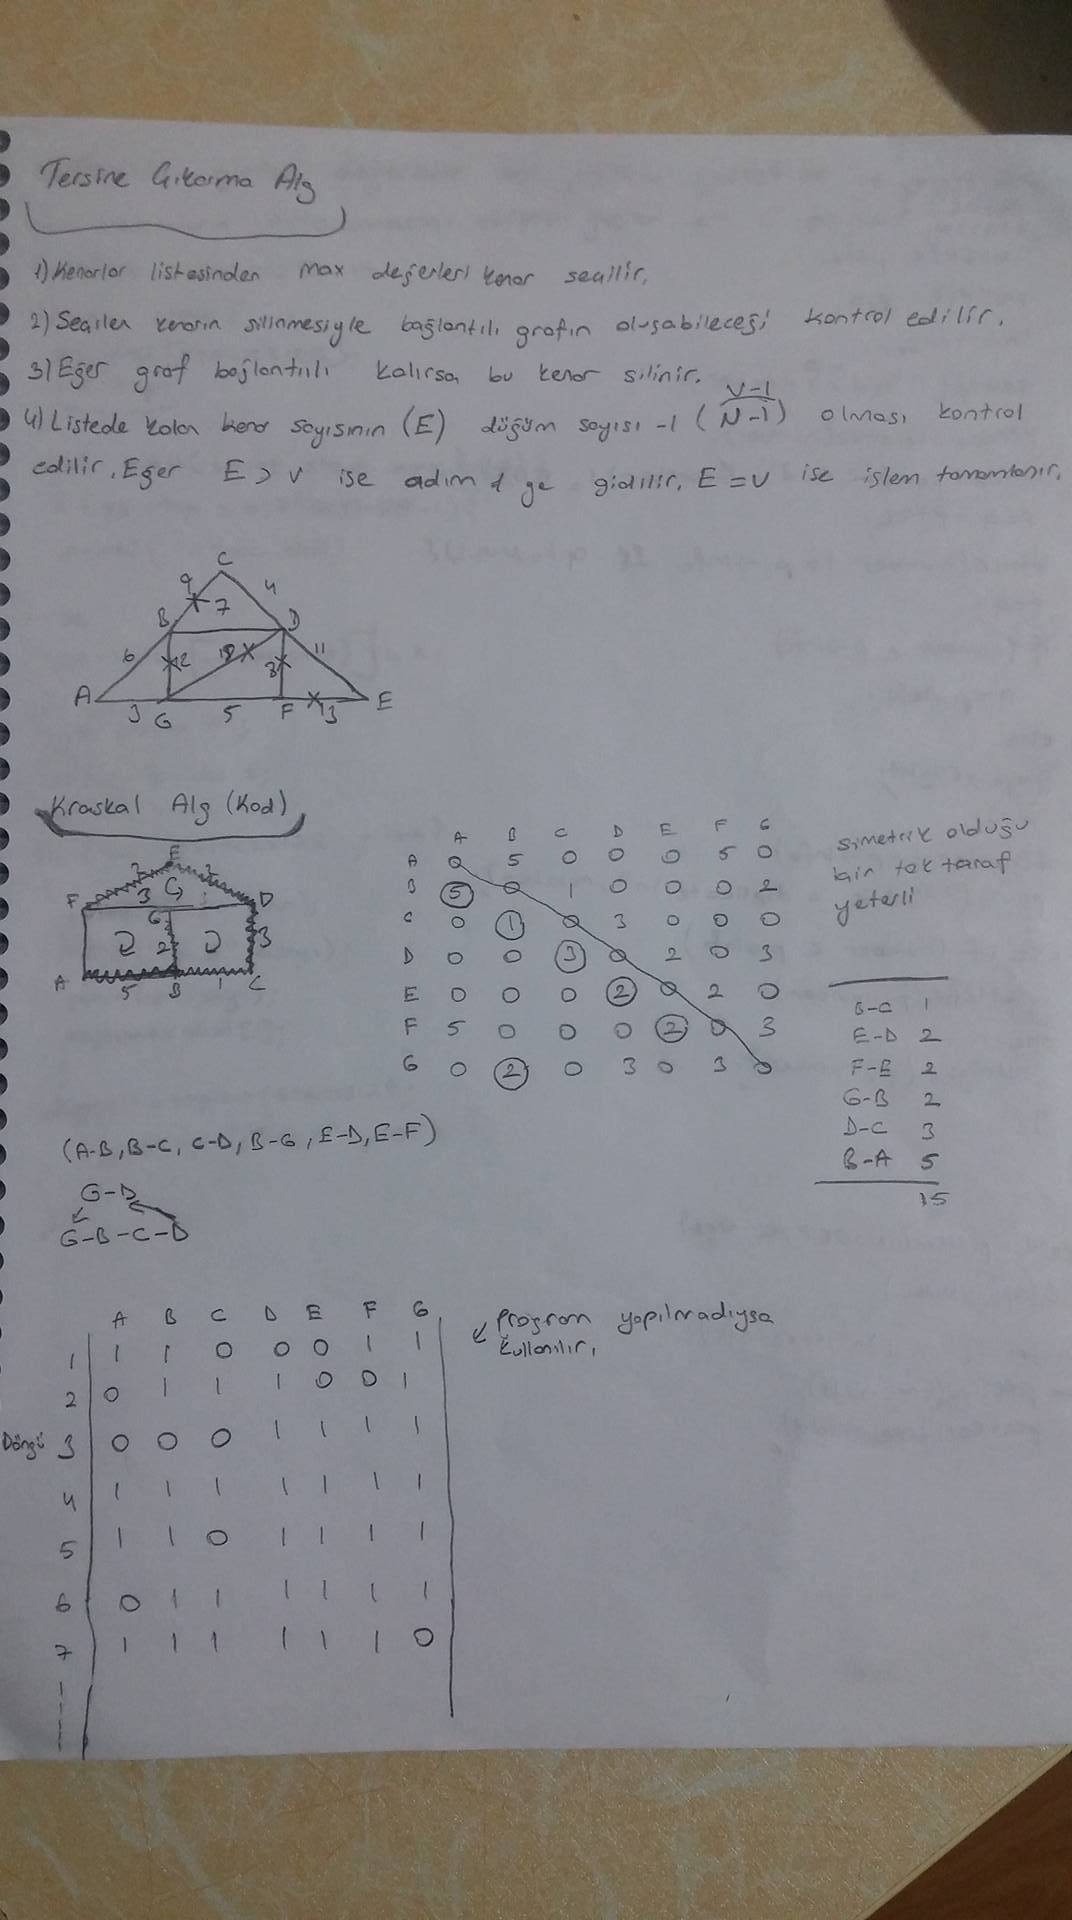 Tersine Çıkarma Alg
1) Kenarlar listesinden max değerleri kenar seçilir.
2) Seçilen kenarın silinmesiyle bağlantılı grafın oluşabileceği kontrol edilir.
3) Eğer graf bağlantılı kalırsa bu kenar silinir.
V-1
4) Listede kalan kenar sayısının (E) düğüm sayısı -1 (N-1) olması kontrol
edilir. Eğer E > V ise adım 1 ye gidilir. E = V ise işlem tamamlanır.
C
9 4
B 7 D
6 12 11
A 3 G 5 F 13 E
Kraskal Alg (Kod)
E
2 2
F 3 G D
6 2 3
A 5 B 1 C
A B C D E F G
A 0 5 0 0 0 5 0
B 5 0 1 0 0 0 2
C 0 1 0 3 0 0 0
D 0 0 3 0 2 0 3
E 0 0 0 2 0 2 0
F 5 0 0 0 2 0 3
G 0 2 0 3 0 3 0
simetrik olduğu
için tek taraf
yeterli
B-C 1
E-D 2
F-E 2
G-B 2
D-C 3
B-A 5
15
(A-B, B-C, C-D, B-G, E-D, E-F)
G-D
G-B-C-D
A B C D E F G
1 1 1 0 0 0 1 1
2 0 1 1 1 0 0 1
Döngü 3 0 0 0 1 1 1 1
4 1 1 1 1 1 1 1
5 1 1 0 1 1 1 1
6 0 1 1 1 1 1 1
7 1 1 1 1 1 1 0
Program yapılmadıysa
kullanılır.